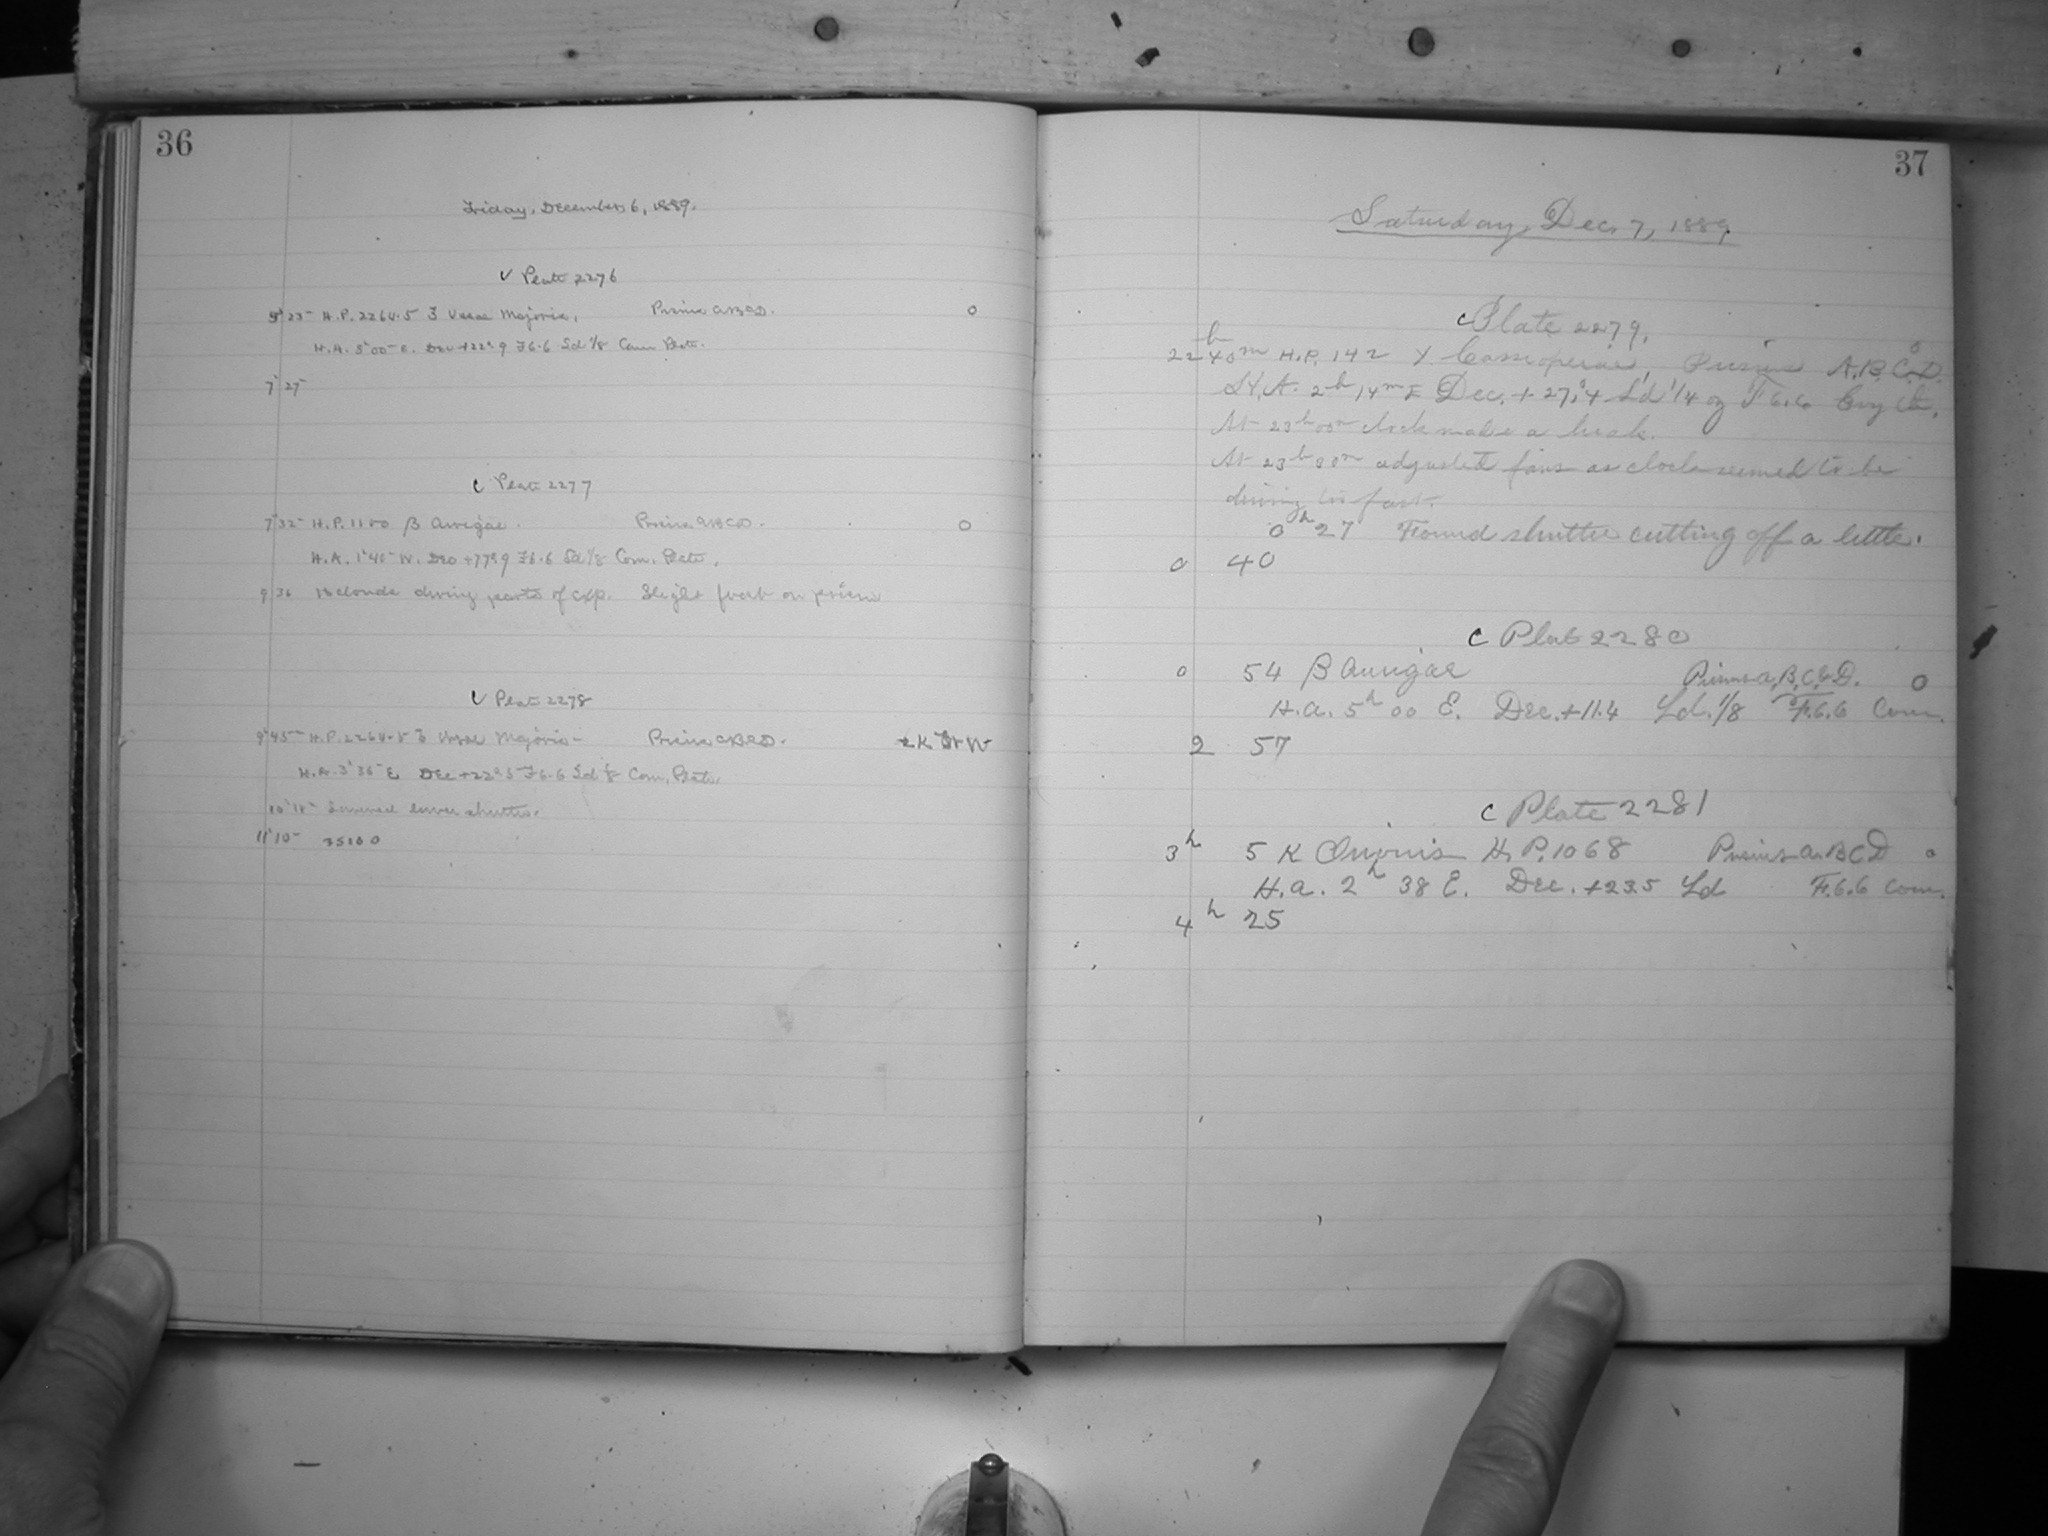 36
Friday, December 6, 1889.
Plate 2276
23 H.P. 2264.5 ζ Ursae Majoris, Prisms ABCD. 0
H.A. 5 00 E. Dec +22.9 F6.6 Sd 1/8 Com Plate.
7 27
C Plate 2277
7 32 H.P. 1100 β Aurigae. Prisms ABCD. 0
H.A. 1 40 W. Dec +77.9 F6.6 Sd 1/8 Com. Plate.
9 36 clouds during parts of exp. Slight frost on prism
Plate 2278
9 45 H.P. 2264.5 ζ Ursae Majoris Prisms ABCD.
H.A. 3 35 E Dec +22.5 F6.6 Sd 1/8 Com. Plate
10 18 lower shutter.
11 10
37
Saturday, Dec. 7, 1889
C Plate 2279.
22h 40m H.P. 142 γ Cassiopeiae, Prisms A.B.C.D. 0
H.A. 2h 14m E Dec. + 27.4 Sd 1/4 F 6.6
At 23h 00m clock made a break.
At 23h 30m adjusted fans as clock seemed to be
driving too fast.
0h 27 Found shutter cutting off a little.
0 40
C Plate 2280
0 54 β Aurigae Prisms a, B, C, & D. 0
H.a. 5h 00 E. Dec. +11.4 Sd. 1/8 F.6.6 Com.
2 57
C Plate 2281
3h 5 K Orionis H.P. 1068 Prisms a. B C D 0
H.a. 2h 38 E. Dec. +23.5 Sd F.6.6 Com.
4h 25